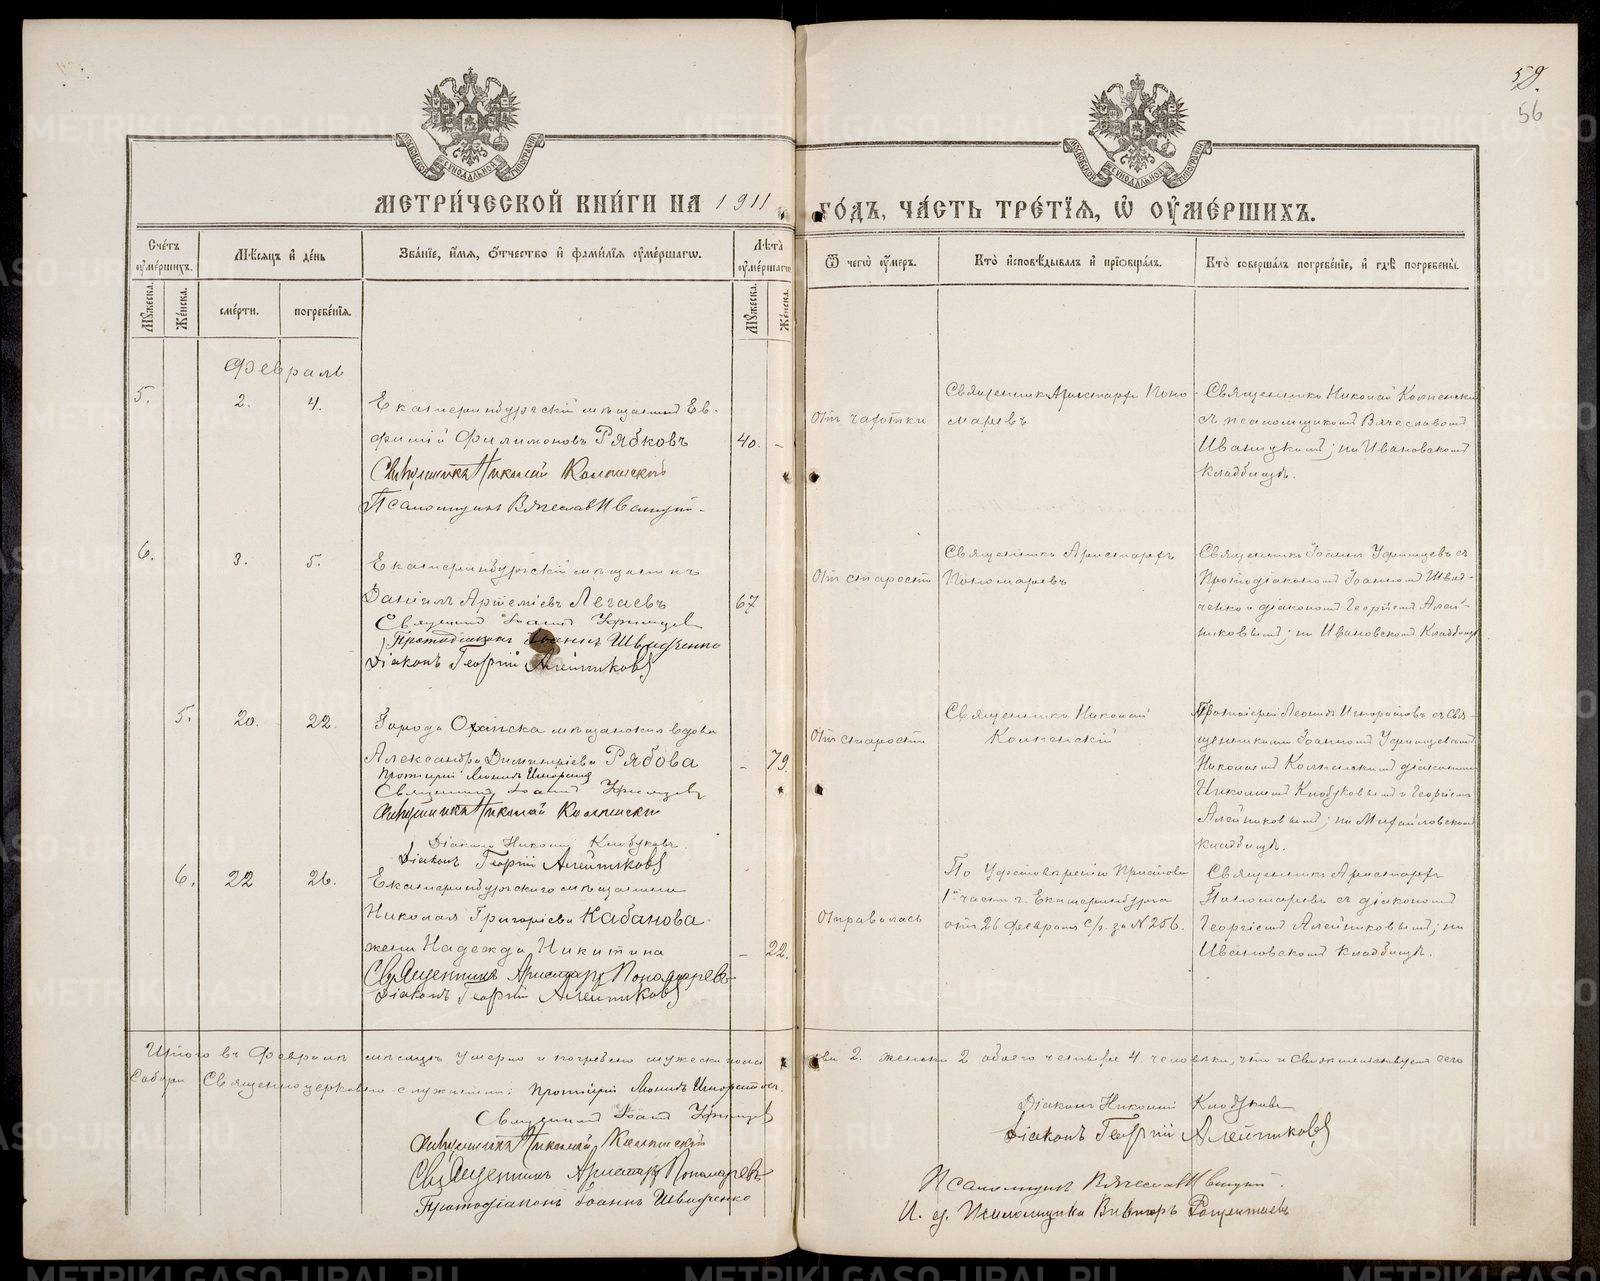 59.
56
МЕТРИ́ЧЕСКОЙ КНИ́ГИ НА 1911
ГО́ДЪ, ЧА́СТЬ ТРЕ́ТЇѦ, Ѡ҆ ОУ҆МЕ́РШИХЪ.
Сче́тъ оу҆ме́ршихъ.
Мꙋ́жеска.
Же́нска.
Мѣ́сѧцъ и҆ де́нь
сме́рти.
погребе́нїѧ.
Зва́нїе, и҆́мѧ, ѻ҆́тчество и҆ фами́лїѧ оу҆ме́ршагѡ.
Лѣ́та оу҆ме́ршагѡ
Мꙋ́жеска.
Же́нска.
Ѿ чегѡ̀ оу҆́меръ.
Кто̀ и҆сповѣ́дывалъ и҆ прїѡбща́лъ.
Кто̀ соверша́лъ погребе́нїе, и҆ гдѣ̀ погребены̀.
Февраль
5.
2.
4.
Екатеринбургскій мѣщанинъ Ев-
фимій Филимоновъ Рябковъ
40. –
Священникъ Николай
Псаломщикъ Вячеславъ Иваницкій.
Отъ чахотки
Священникъ Аристархъ Поно-
маревъ
Священникъ Николай
съ псаломщикомъ Вячеславомъ
Иваницкимъ; на Ивановскомъ
кладбищѣ.
6.
3.
5.
Екатеринбургскій мѣщанинъ
Даніилъ Артеміевъ Легаевъ
67
Священникъ Іоаннъ
Протодіаконъ Іоаннъ Швидченко
Діаконъ Георгій Алейниковъ
Отъ старости
Священникъ Аристархъ
Пономаревъ
Священникъ Іоаннъ съ
Протодіакономъ Іоанномъ Швид-
ченко и діакономъ Георгіемъ Алей-
никовымъ; на Ивановскомъ кладбищѣ
5.
20.
22.
Города Оханска мѣщанская вдова
Александра Димитріева Рябова
– 79
Протоіерей Леонидъ Игноратовъ
Священникъ Іоаннъ
Священникъ Николай
Діаконъ Николай Клобуковъ.
Діаконъ Георгій Алейниковъ
Отъ старости
Священникъ Николай
Протоіерей Леонидъ Игноратовъ съ свя-
щенниками Іоанномъ
Николаемъ діаконами
Николаемъ Клобуковымъ и Георгіемъ
Алейниковымъ; на Михайловскомъ
кладбищѣ.
6.
22
26.
Екатеринбургскаго мѣщанина
Николая Григоріева Кабанова
жена Надежда Никитина
– 22.
Священникъ Аристархъ Пономаревъ
Діаконъ Георгій Алейниковъ
Отравилась
По удостовѣренію Пристава
1й части г. Екатеринбурга
отъ 26 февраля с/г. за № 256.
Священникъ Аристархъ
Пономаревъ съ діакономъ
Георгіемъ Алейниковымъ; на
Ивановскомъ кладбищѣ.
Итого въ Февралѣ мѣсяцѣ умерло и погребено мужеска пола
два 2. женска 2 обоего четыре 4. человѣка, что и свидѣтельствуемъ сего
Собора Священноцерковно-служители: Протоіерей Леонидъ Игноратовъ.
Священникъ Іоаннъ
Священникъ Николай
Священникъ Аристархъ Пономаревъ
Протодіаконъ Іоаннъ Швидченко
Діаконъ Николай Клобуковъ
Діаконъ Георгій Алейниковъ
Псаломщикъ Вячеславъ Иваницкій.
И. д. Псаломщика Викторъ